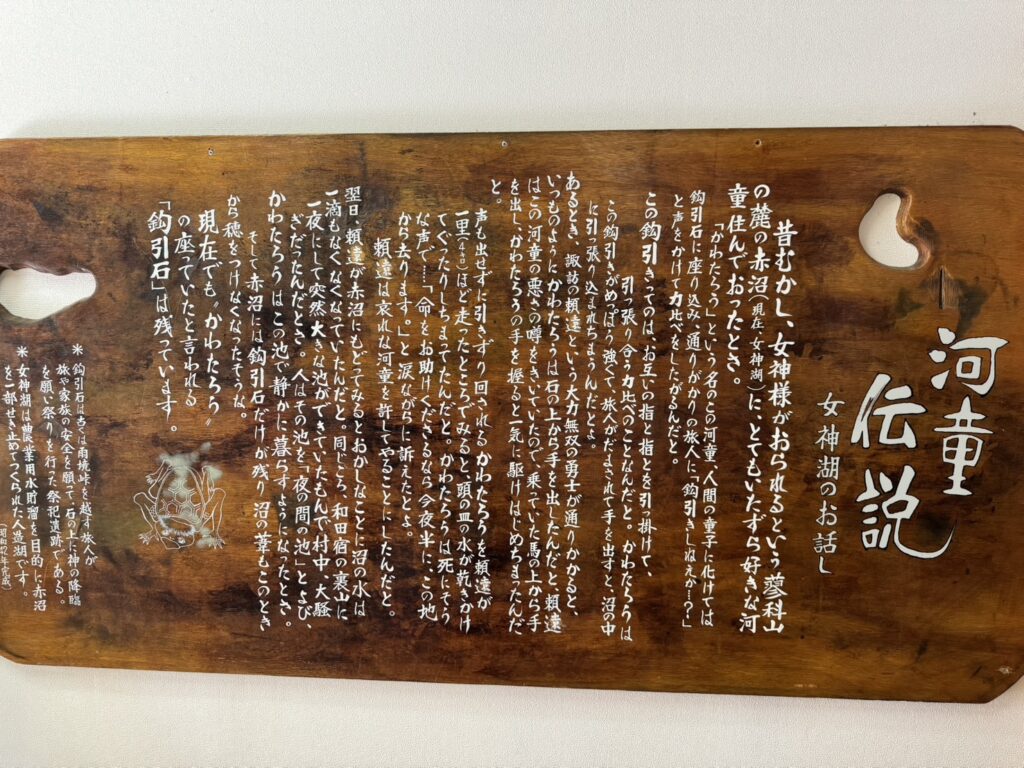 河童
伝説
女神湖のお話し
昔むかし、女神様がおられるという蓼科山
の麓の赤沼(現在、女神湖)に、とてもいたずら好きな河
童住んでおったとさ。
「かわたろう」という名のこの河童、人間の童子に化けては
鈎引石に座り込み通りがかりの旅人に「鈎引きしねえか…?」
と声をかけて力比べをしたがるんだと。
この鈎引きってのは、お互いの指と指とを引っ掛けて、
引っ張り合う力比べのことなんだと。かわたろうは
この鈎引きがめっぽう強くて、旅人がだまされて手を出すと、沼の中
に引っ張り込まれちまうんだとよ。
あるとき、諏訪の頼遠という大力無双の勇士が通りかかると、
いつものようにかわたろうは石の上から手を出したんだと、頼遠
はこの河童の悪さの噂をきいていたので、乗っていた馬の上から手
を出し、かわたろうの手を握ると一気に駆けはじめちまったんだ
と。
声も出せずに引きずり回されるかわたろうを頼遠が
一里(4キロ)ほど走ったところでみると、頭の皿の水が乾きかけ
てぐったりしちまってたんだと。かわたろうは死にそう
な声で…「命をお助けくださるなら今夜半に、この地
から去ります。」と涙ながらに訴えたとよ。
頼遠は哀れな河童を許してやることにしたんだと。
翌日、頼遠が赤沼にもどってみるとおかしなことに沼の水は
一滴もなくなくなっていたんだと。同じころ、和田宿の裏山に
一夜にして突然大きな池ができていたもんで村中、大騒
ぎだったんだとさ。人はその池を「夜の間の池」とよび、
かわたろうはこの池で静かに暮らすようになったとさ。
そして赤沼には鈎引石だけが残り沼の葦もこのとき
から穂をつけなくなったそうな。
現在でも〝かわたろう〟
の座っていたと言われる
「鈎引石」は残っています。
＊鈎引石は古くは雨境峠を越す旅人が
旅や家族の安全を願って、石の上に神の降臨
を願い祭りを行った祭祀遺跡である。
＊女神湖は農業用水貯溜を目的に赤沼
を一部せき止めてつくられた人造湖です。
(昭和42年完成)